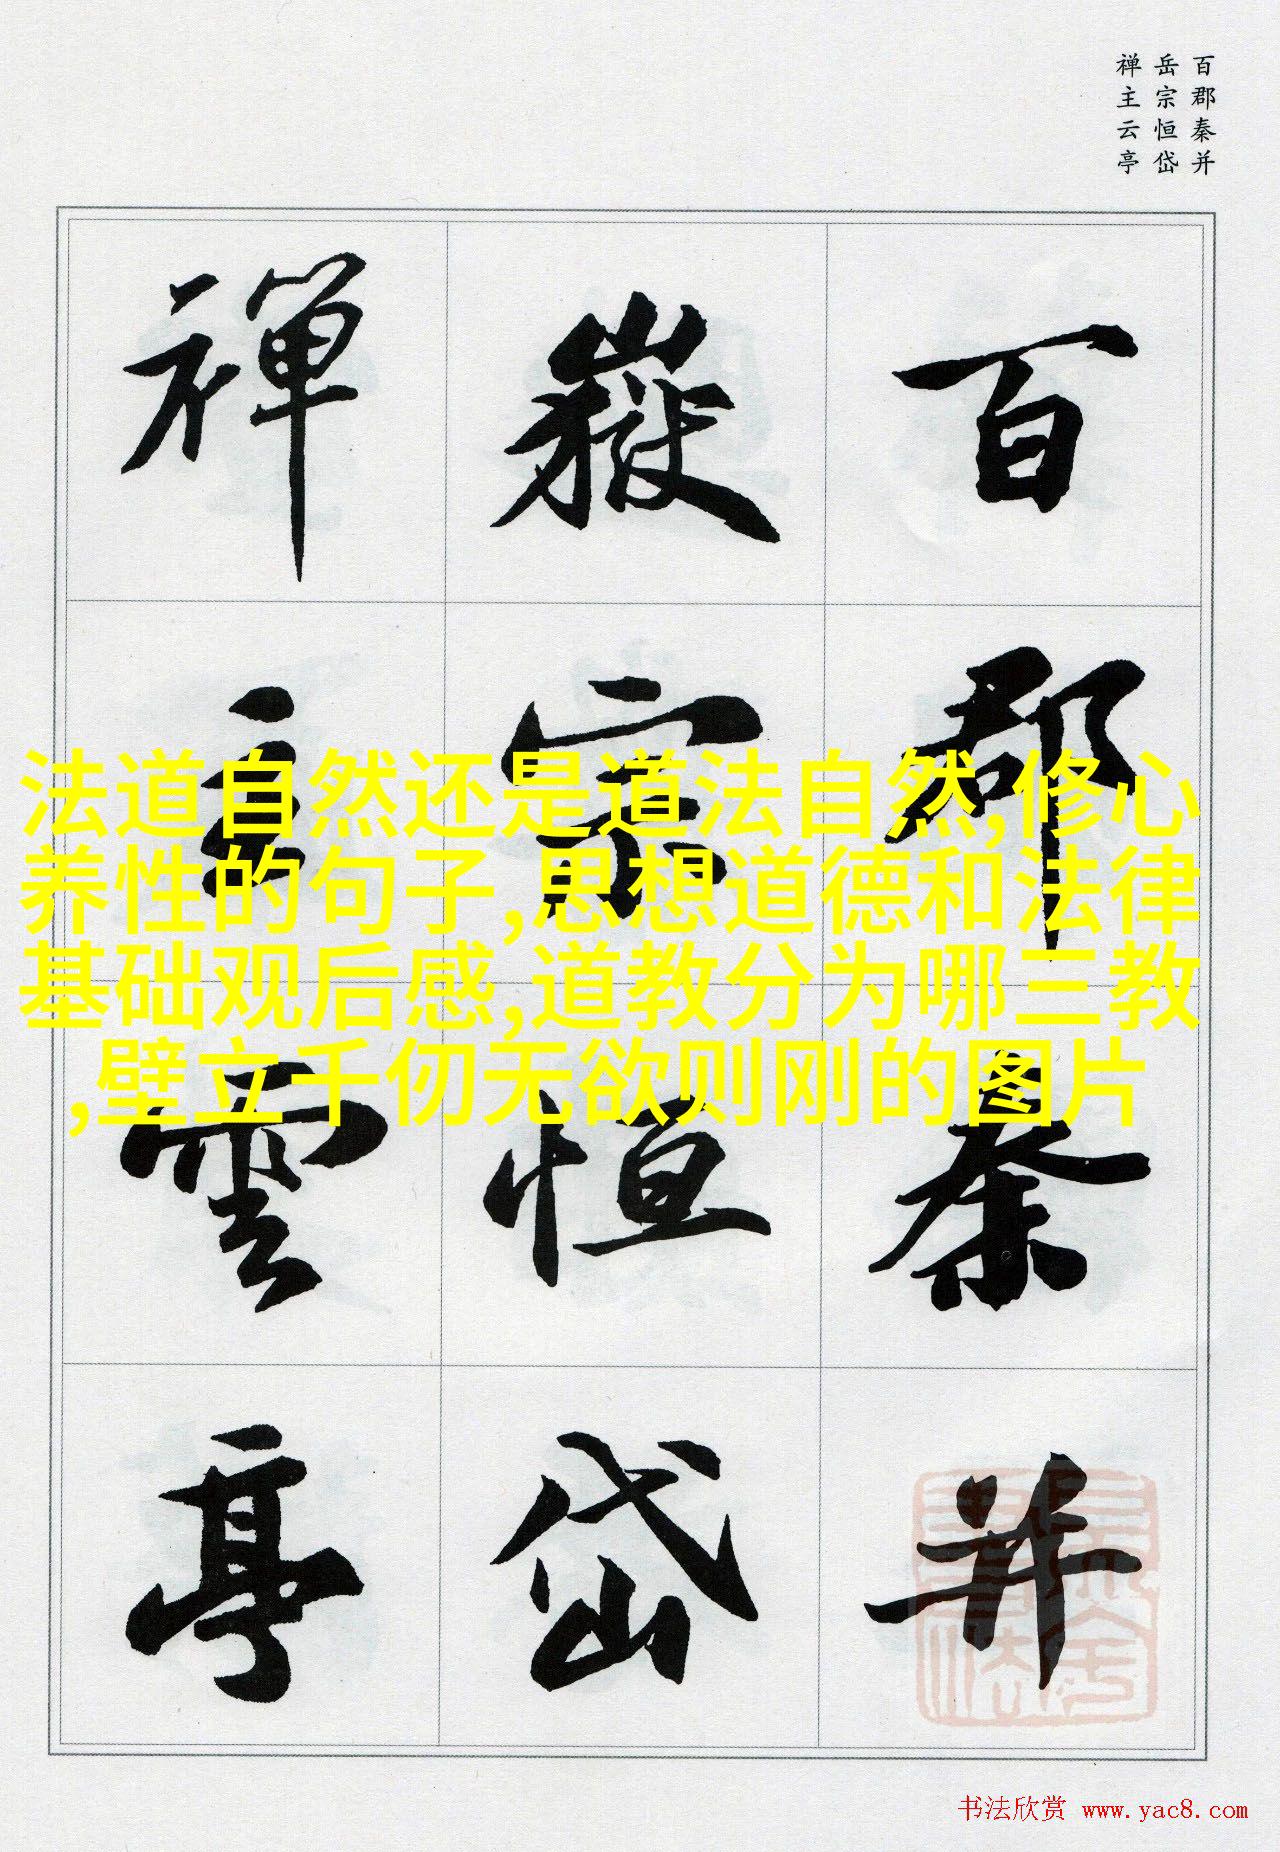 百郡秦并
岳宗恒岱
禅主云亭
百郡秦并
嶽宗恒岱
禅主雲亭
法道自然还是道法自然,修心
养性的句子,思想道德和法律
基础观后感,道教分为哪三教
,壁立千仞无欲则刚的图片
书法欣赏 www.yac8.com